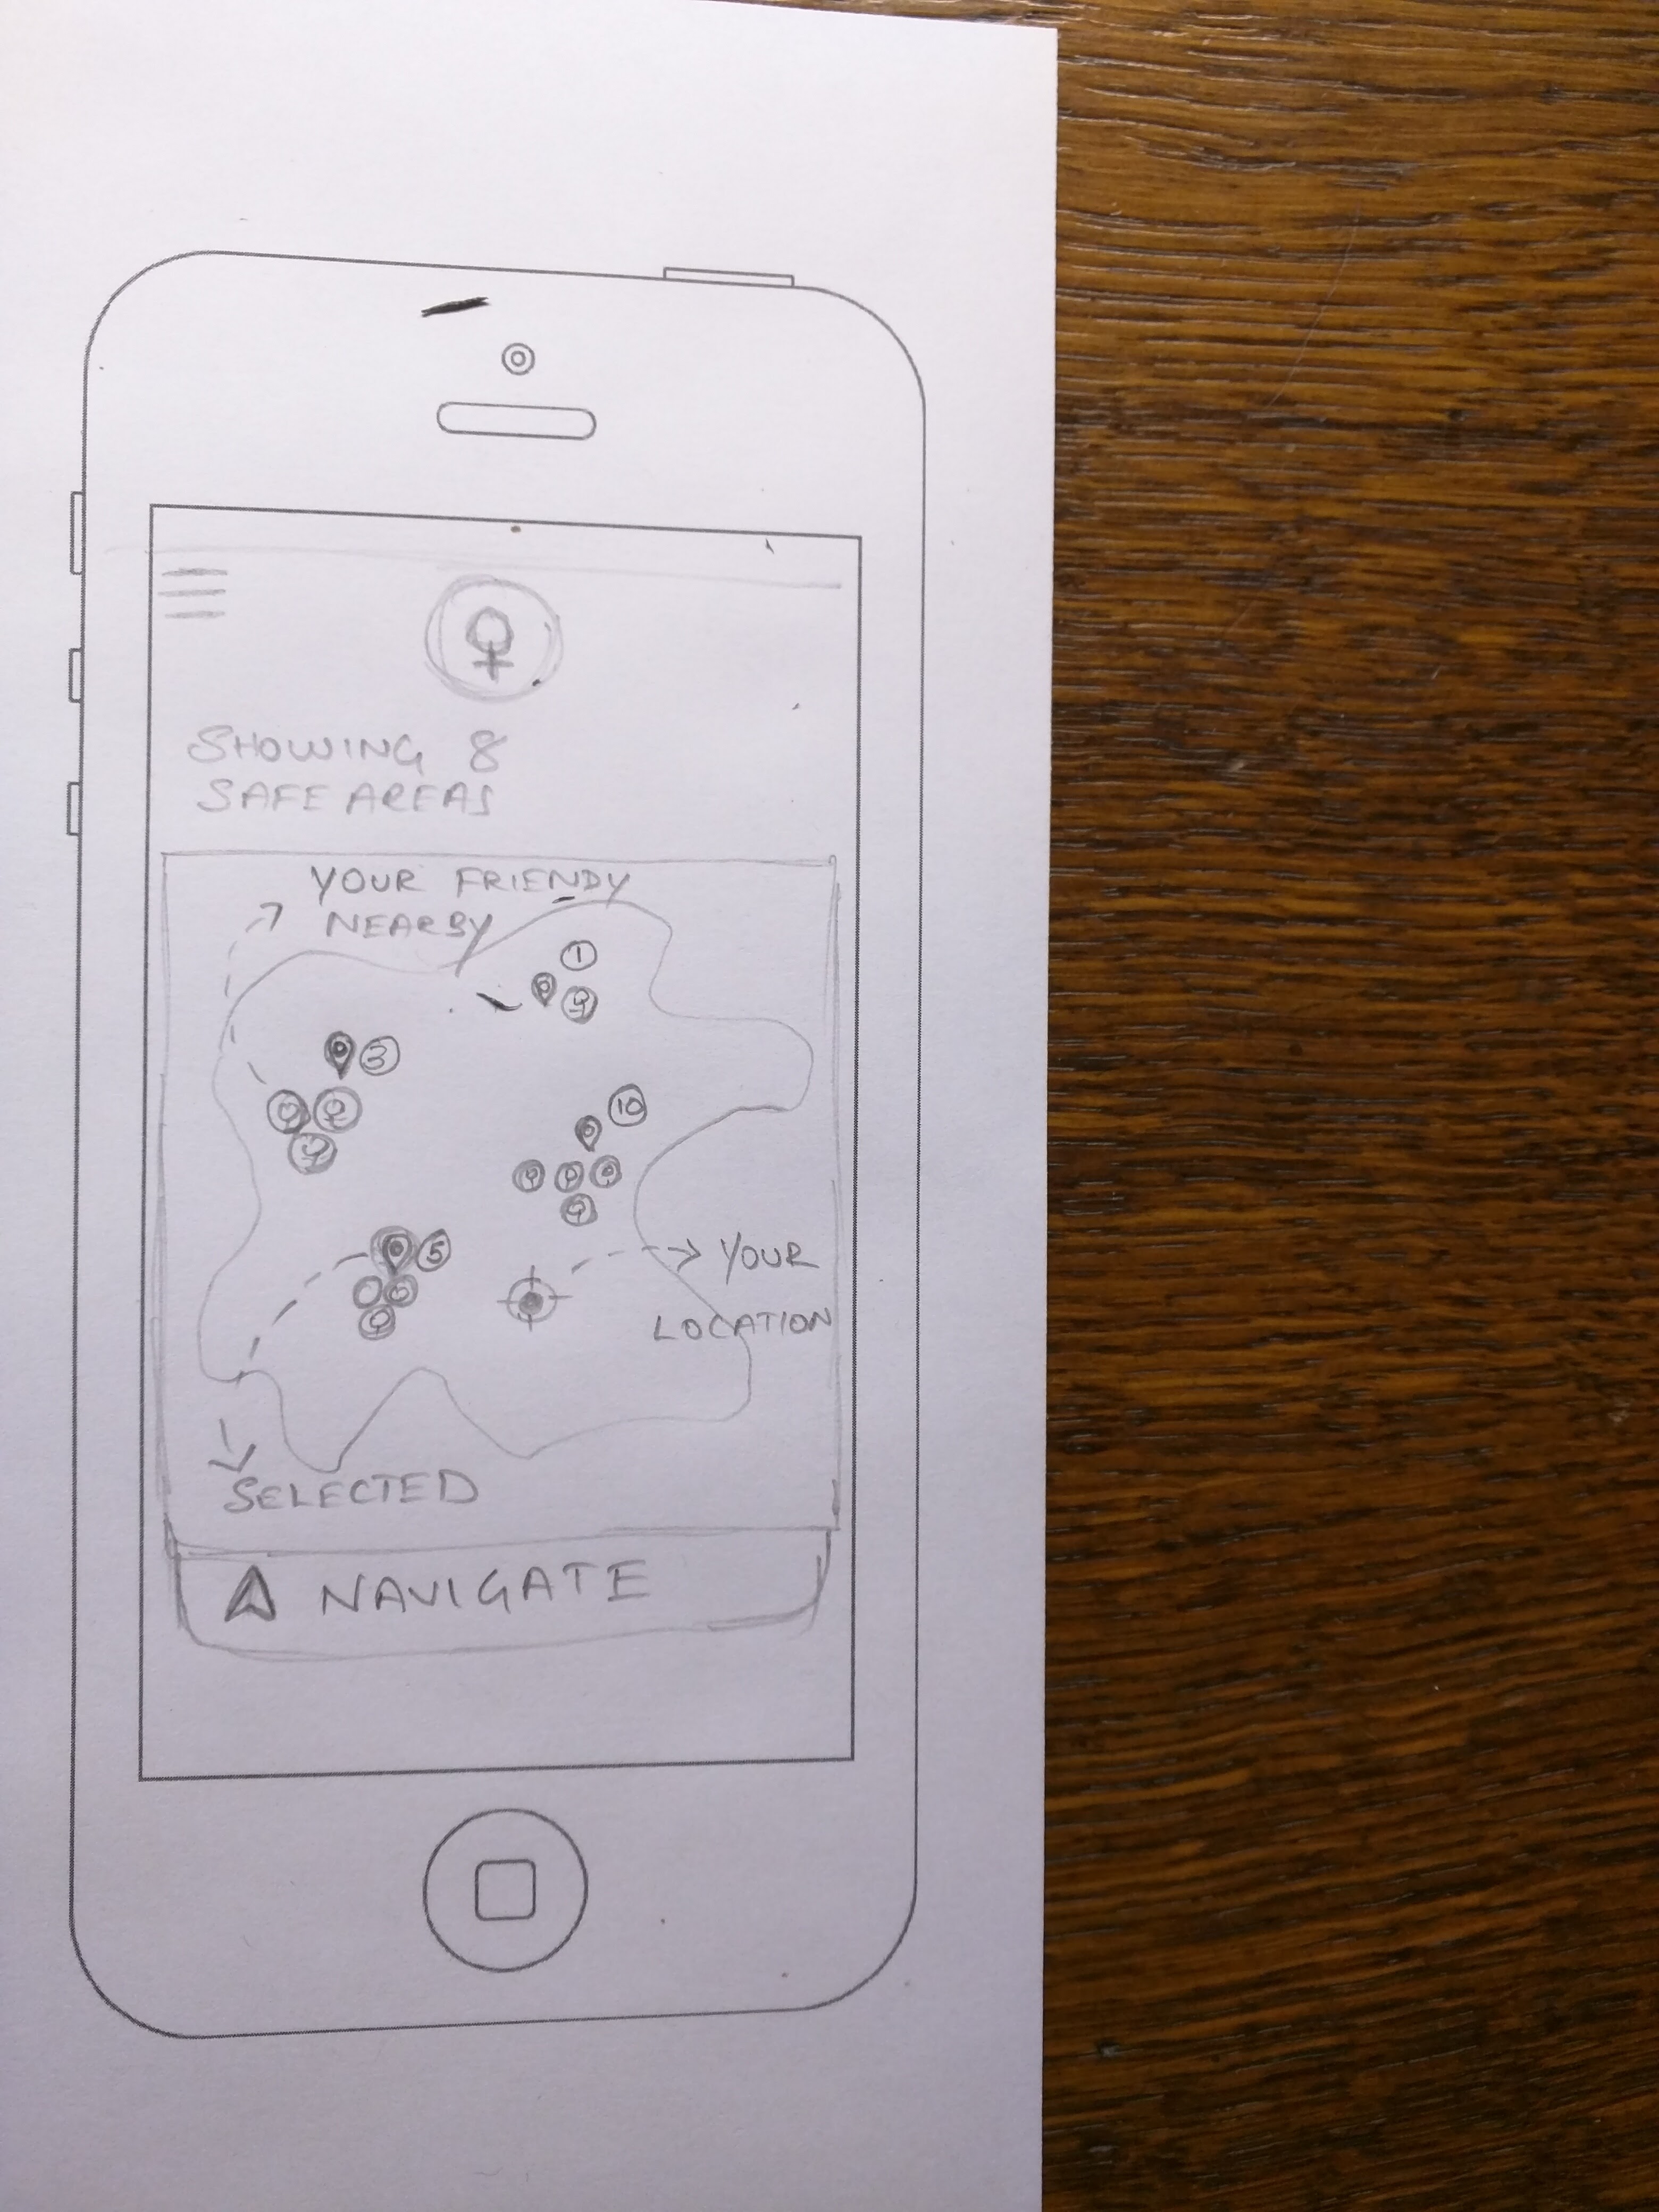 SHOWING 8
SAFE AREAS
YOUR FRIENDY
NEARBY
1
3
10
5
YOUR
LOCATION
SELECTED
NAVIGATE